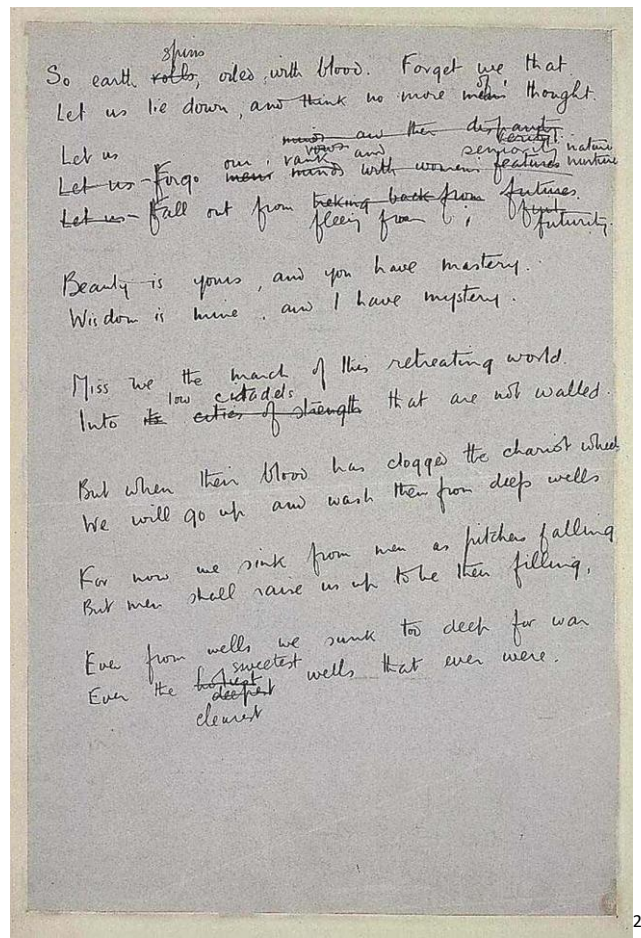 spins
So earth rolls, oiled with blood. Forget we that.
Let us lie down, and think no more men's of thought.
minds and then
Let us vows verity.
Let us - Forgo our rank and seniority nature
mens minds with womens features nurture
Let us - Fall out from treking back from futures.
fleeing from futurity.
Beauty is yours, and you have mastery.
Wisdom is mine, and I have mystery.
Miss we the march of this retreating world
low citadels
Into its cities of strength that are not walled.
But when their blood has clogged the chariot wheels
We will go up and wash them from deep wells
For now we sink from men as pitchers falling
But men shall raise us up to be their filling,
Even from wells we sunk too deep for war
sweetest
Even the wells that ever were.
deepest
clearest
2